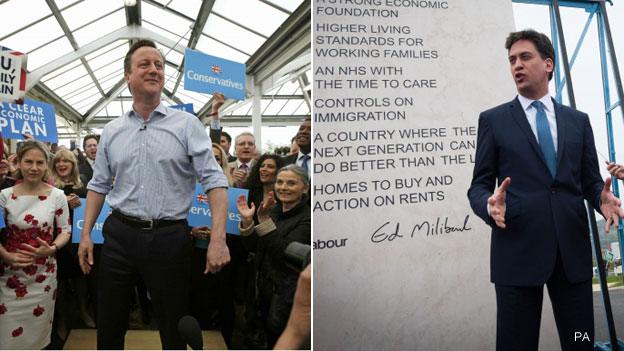 U
ILY
Conservatives
CLEAR
ECONOMIC
PLAN
A STRONG ECONOMIC
FOUNDATION
HIGHER LIVING
STANDARDS FOR
WORKING FAMILIES
AN NHS WITH
THE TIME TO CARE
CONTROLS ON
IMMIGRATION
A COUNTRY WHERE THE
NEXT GENERATION CAN
DO BETTER THAN THE L
HOMES TO BUY AND
ACTION ON RENTS
abour
Ed Miliband
PA